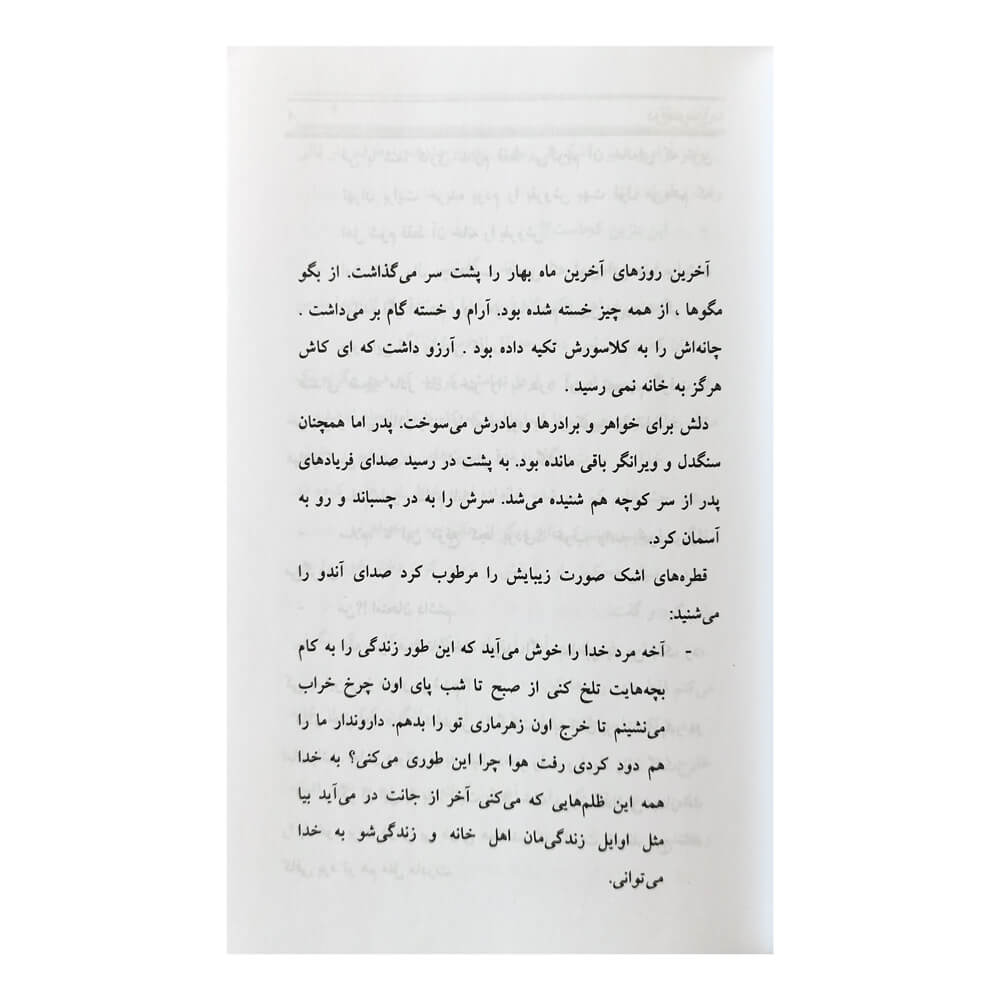 آخرین روزهای آخرین ماه بهار را پشت سر می‌گذاشت. از بگو
مگوها ، از همه چیز خسته شده بود. آرام و خسته گام بر می‌داشت .
چانه‌اش را به کلاسورش تکیه داده بود . آرزو داشت که ای کاش
هرگز به خانه نمی رسید .
دلش برای خواهر و برادرها و مادرش می‌سوخت. پدر اما همچنان
سنگدل و ویرانگر باقی مانده بود. به پشت در رسید صدای فریادهای
پدر از سر کوچه هم شنیده می‌شد. سرش را به در چسباند و رو به
آسمان کرد.
قطره‌های اشک صورت زیبایش را مرطوب کرد صدای آندو را
می‌شنید:
- آخه مرد خدا را خوش می‌آید که این طور زندگی را به کام
بچه‌هایت تلخ کنی از صبح تا شب پای اون چرخ خراب
می‌نشینم تا خرج اون زهرماری تو را بدهم. داروندار ما را
هم دود کردی رفت هوا چرا این طوری می‌کنی؟ به خدا
همه این ظلم‌هایی که می‌کنی آخر از جانت در می‌آید بیا
مثل اوایل زندگی‌مان اهل خانه و زندگی‌شو به خدا
می‌توانی.